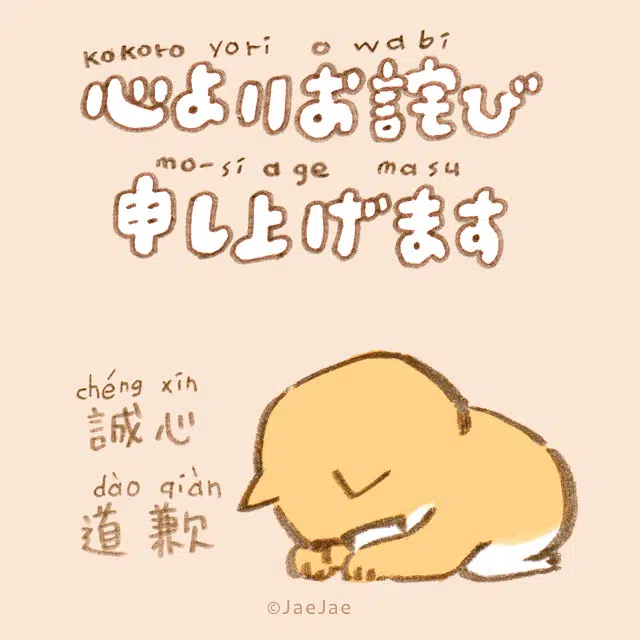 kokoro yori o wabi
心よりお詫び
mo-si age masu
申し上げます
chéng xín
誠心
dào qiàn
道歉
©JaeJae